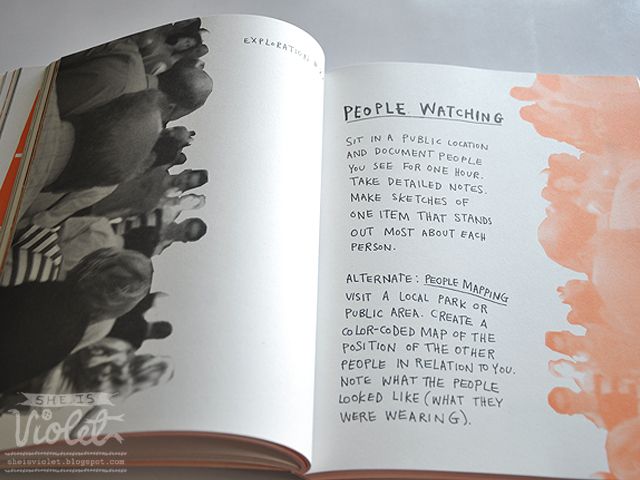 EXPLORATION #
PEOPLE WATCHING
SIT IN A PUBLIC LOCATION
AND DOCUMENT PEOPLE
YOU SEE FOR ONE HOUR.
TAKE DETAILED NOTES.
MAKE SKETCHES OF
ONE ITEM THAT STANDS
OUT MOST ABOUT EACH
PERSON.
ALTERNATE: PEOPLE MAPPING
VISIT A LOCAL PARK OR
PUBLIC AREA. CREATE A
COLOR-CODED MAP OF THE
POSITION OF THE OTHER
PEOPLE IN RELATION TO YOU.
NOTE WHAT THE PEOPLE
LOOKED LIKE (WHAT THEY
WERE WEARING).
SHE IS
Violet
sheisviolet.blogspot.com